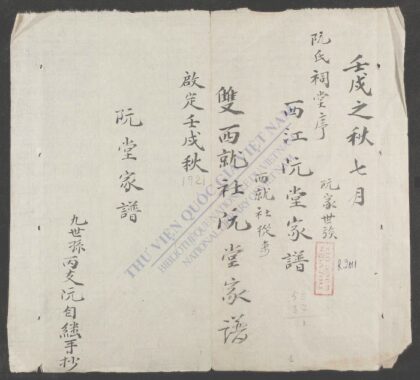 壬戌之秋七月
阮家世族
阮氏祠堂序
西江阮堂家譜
西就社從
雙西就社阮堂家譜
啟定壬戌秋
1921
阮堂家譜
九世孫丙支阮自継手抄
R.2011
THƯ VIỆN QUỐC GIA VIỆT NAM
BIBLIOTHÈQUE NATIONALE DU VIETNAM
NATIONAL LIBRARY OF VIETNAM